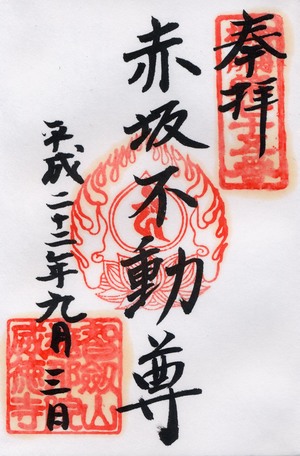 奉拝
赤坂不動尊
平成二十三年九月三日
智劔山
威徳寺